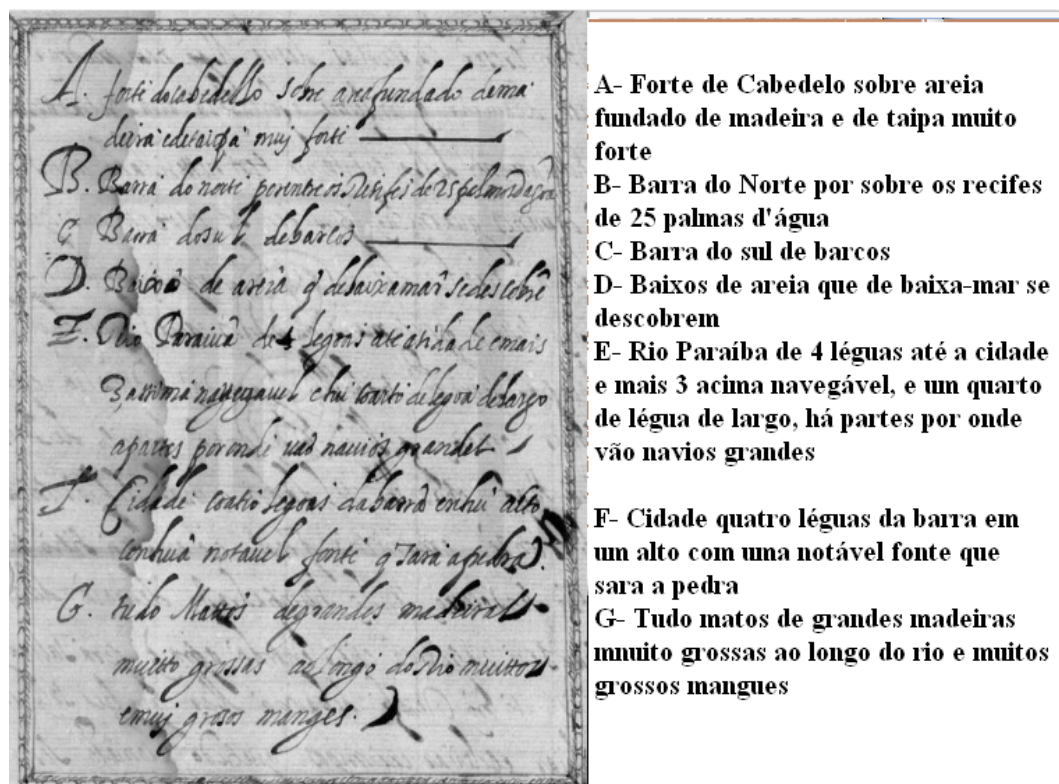 A. forte do cabedello sobre area fundado de ma
deira e de taipa muj forte
B. Barra do norte per entre os Recifes de 25 palmos dagoa
C Barra do sul de barcos
D. Baixos de areia q de baixa mar se descobrẽ
E. Rio Paraiva de 4 legoas ate a cidade e mais
3 assima navegavel e hũ coarto de legoa de largo
a partes por onde vaõ navios grandes
F. Cidade coatro legoas da barra en hũ alto
con huã notavel fonte q sara a pedra
G. tudo Mattos de grandes madeiras
muitto grossas ao longo do Rio muittos
e muj grosos manges.
A- Forte de Cabedelo sobre areia
fundado de madeira e de taipa muito
forte
B- Barra do Norte por sobre os recifes
de 25 palmas d'água
C- Barra do sul de barcos
D- Baixos de areia que de baixa-mar se
descobrem
E- Rio Paraíba de 4 léguas até a cidade
e mais 3 acima navegável, e un quarto
de légua de largo, há partes por onde
vão navios grandes
F- Cidade quatro léguas da barra em
um alto com uma notável fonte que
sara a pedra
G- Tudo matos de grandes madeiras
mnuito grossas ao longo do rio e muitos
grossos mangues